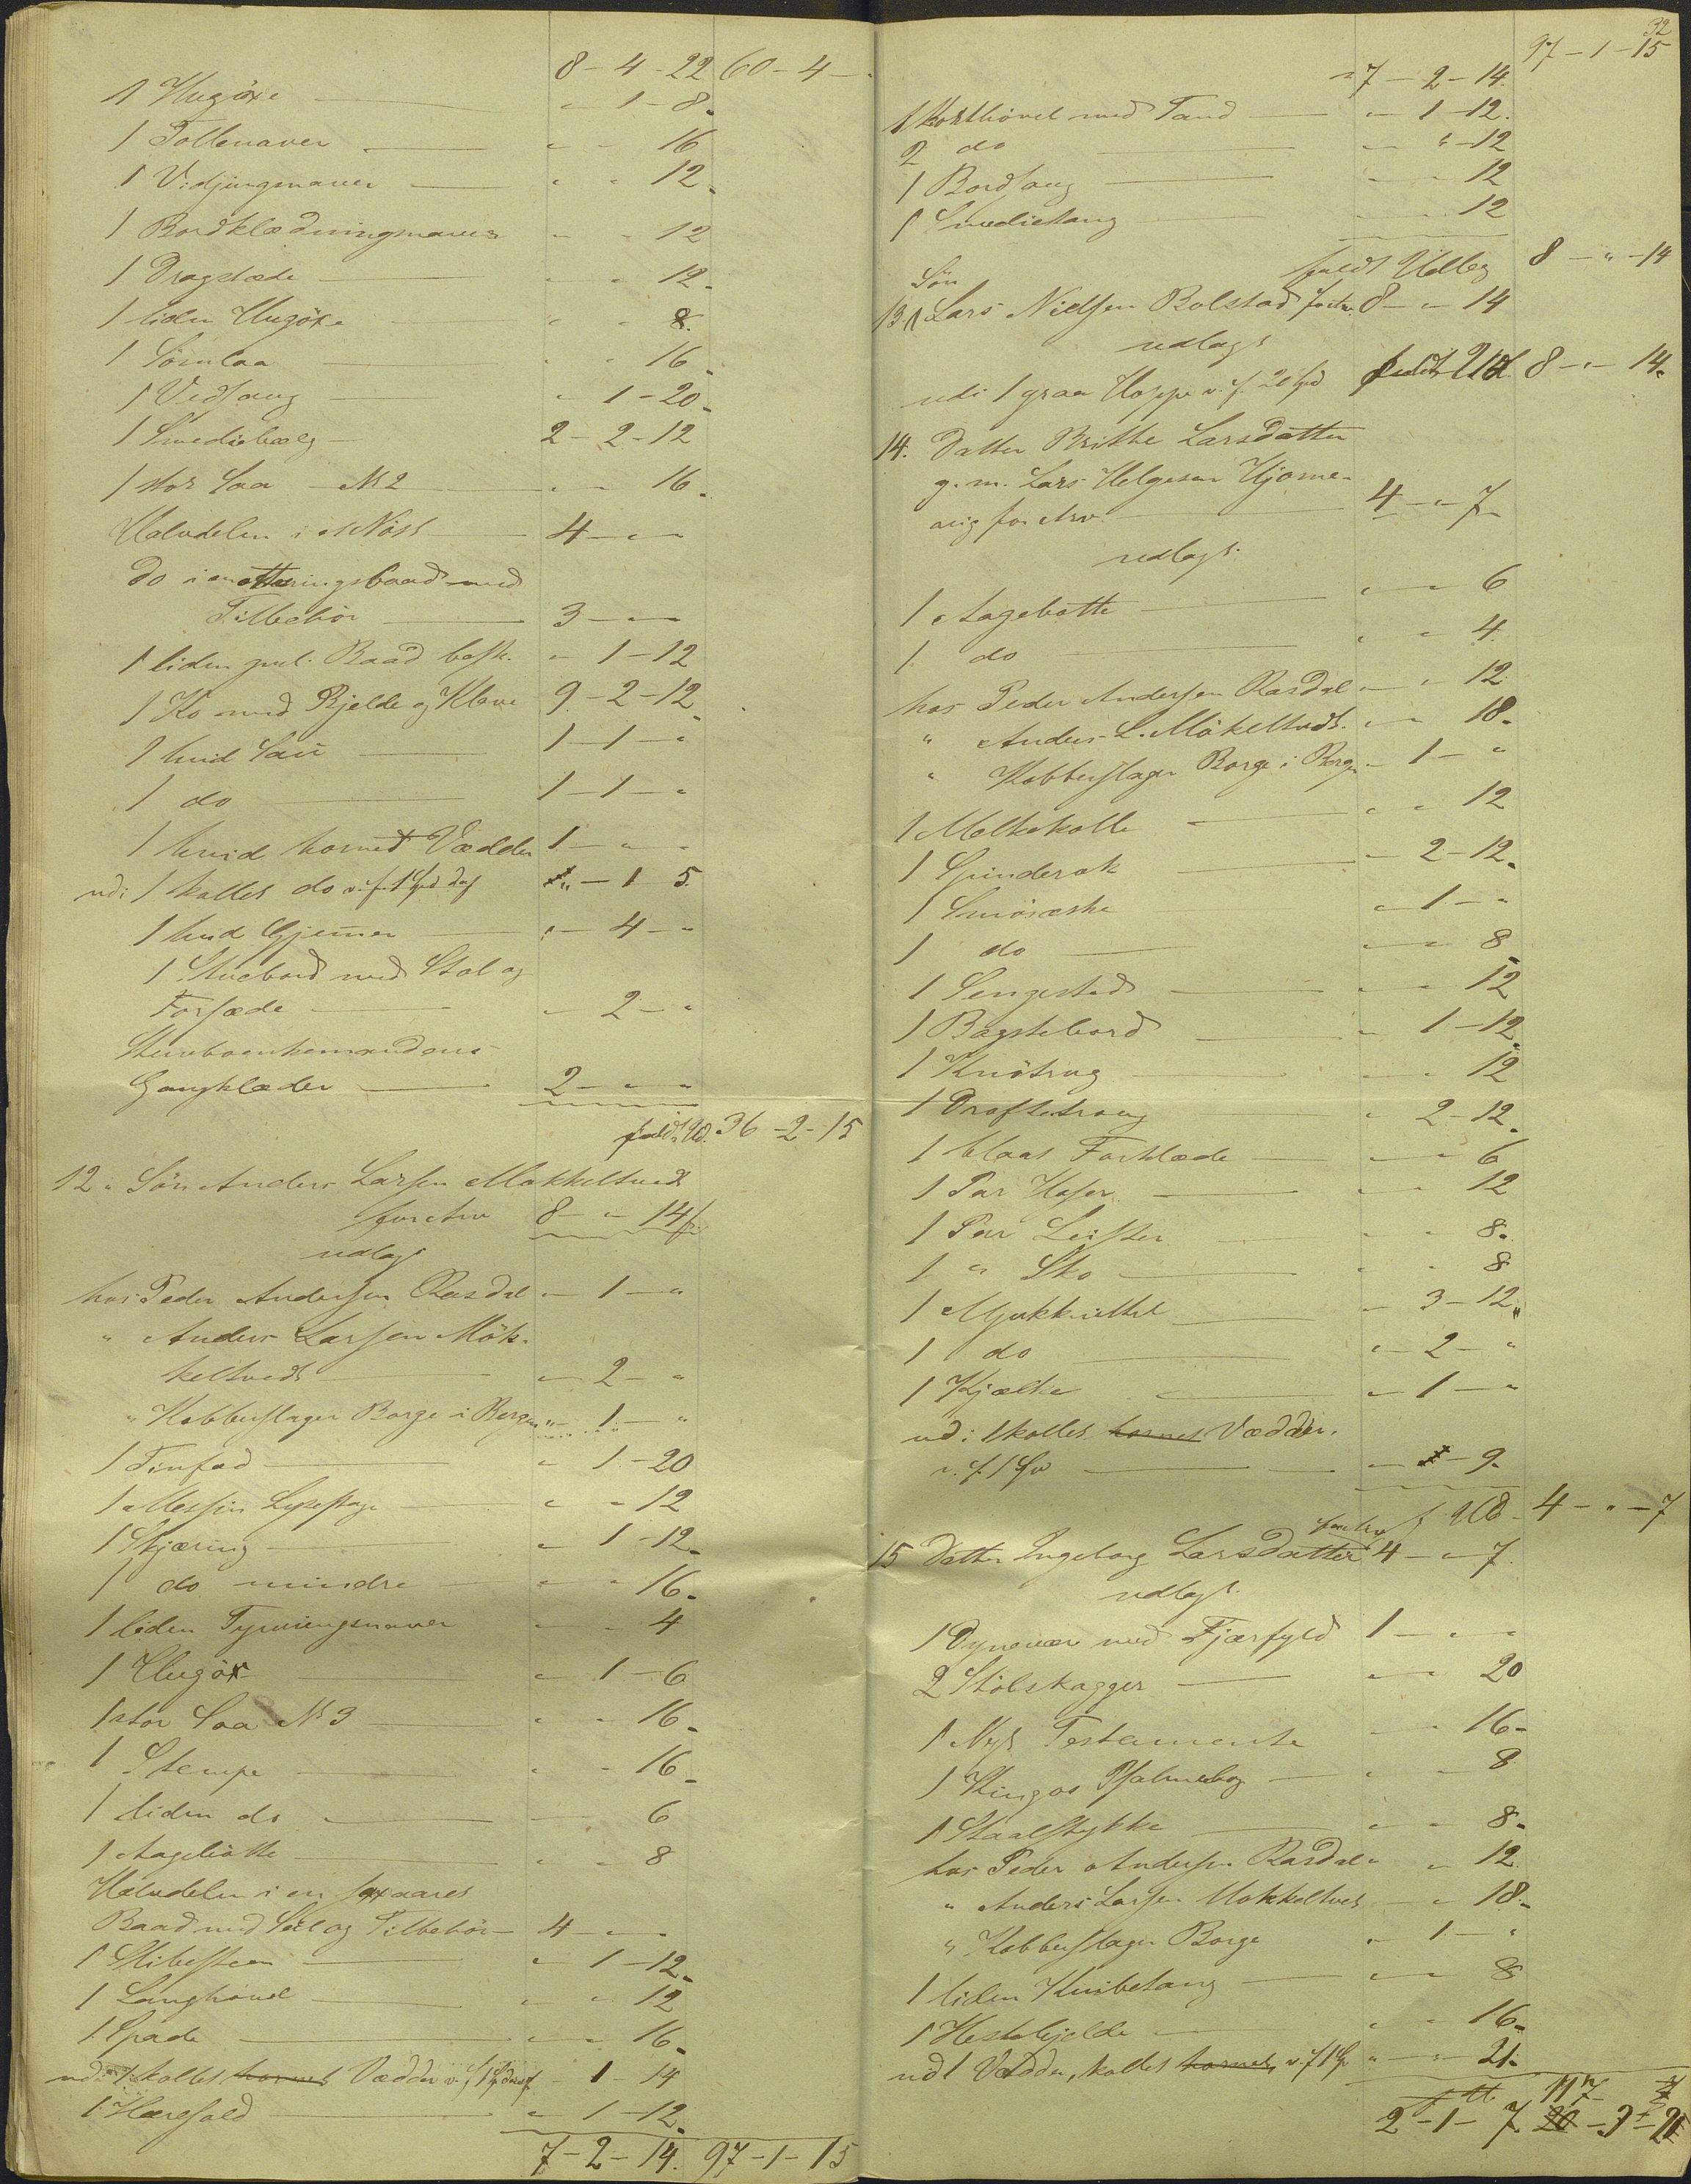 8 - 4 - 22 60 - 4 -
1 Hugöxe " - 1 - 8
1 Tollenaver " - " 16
1 Vidjingnaver " " 12
1 Bordklædningnaver " " 12
1 Dragstæde " " 12
1 liden Hugöxe " " 8
1 Sömlaa " " 16
1 Vedsaug " 1 - 20
1 Smediebælg 2 - 2 - 12
1 stor Saa N 2 " " 16
Halvdelen i 1 Nöst 4 - " -
do i en otteringsbaad med
Tilbehör 3 - " -
1 liden gml. Baad besk. " 1 - 12
1 Ko med Bjelde og Klave 9 - 2 - 12
1 hvid Sau 1 - 1 - "
1 do 1 - 1 - "
1 hvid hornet Vædder 1 - " -
udi 1 kollet do v. f. 1 Spd deraf " - 1 5
1 hvid Gjemer " - 4 - "
1 Stuebord med Stol og
Forsæde " 2 - "
Stervboenkemandens
Gangklæder 2 - " "
fuldt Ud. 36 - 2 - 15
12. Sön Anders Larsen Mökkeltvedt
for Arv 8 - " 14
udlagt
hos Peder Andersen Rasdal " 1 - "
" Anders Larsen Mök-
keltvedt " 2 - "
" Kobberslager Borge i Bergen " - 1 - "
1 Tinfad " 1 - 20
1 Messing Lysestage " - 12
1 Skjæring " 1 - 12
1 do mindre " " 16
1 liden Tymringsnaver " " 4
1 Hugöx " 1 - 6
1 stor Saa N 3 " " 16
1 Stampe " " 16
1 liden do " 6
1 Agebötte " " 8
Halvdelen i en sexaaret
Baad med Seil og Tilbehör 4 - " -
1 Slibesteen " 1 - 12
1 Langhövel " " 12
1 Spade " " 16
udi 1 kollet hornet Vædder v. f. 1 Spd deraf 1 - 14
1 Hærefald " 1 - 12
7 - 2 - 14. 97 - 1 - 15
32
97 - 1 - 15
7 - 2 - 14
1 Korthövel med Tand " 1 - 12
2 do " " - 12
1 Bordsaug " " 12
1 Smedietang " " 12
fuldt Udlæg 8 - " - 14
Sön
13. Lars Nielsen Bolstad for Arv 8 - " 14
udlagt
udi 1 graa Hoppe v. f. 20 Spd fuldt Ud 8 - " - 14
14. Datter Brithe Larsdatter
g. m. Lars Helgesen Hjorne-
vig for Arv 4 - " 7
udlagt
1 Agebötte " " 6
1 do " " 4
hos Peder Andersen Rasdal " " 12
" Anders L. Mökeltvedt " " 18
" Kobberslager Borge i Bergen " 1 - "
1 Melkekolle " " 12
1 Spinderok " 2 - 12
1 Smöræske " 1 - "
1 do " " 8
1 Sengested " " 12
1 Bagstebord " 1 - 12
1 Knötrug " " 12
1 Droftetraug " 2 - 12
1 blaat Forklæde " " 6
1 Par Hoser " " 12
1 Par Leister " " 8
1 " Sko " " 8
1 Mjukkuttel " 3 - 12
1 do " 2 - "
1 Kjælke " 1 - "
udi 1 kollet hornet Vædder,
v. f. 1 Spd " - 9
f. Ud - 4 - " - 7
15 Datter Ingeborg Larsdatter for Arv 4 - " 7
udlagt
1 Dynevær med Fjærfyld 1 - " "
2 Stölskagger " " 20
1 Nyt Testamente " " 16
1 Kingos Psalmebog " " 8
1 Staalstykke " " 8
hos Peder Andersen Rasdal " " 12
" Anders Larsen Mokkeltvet " " 18
" Kobberslager Borge " 1 - "
1 liden Knibetang " " 8
1 Hestebjelde " " 16
udi 1 Vædder, kollet hornet, v. f. 1 Sp " " 21
2 - 1 - 7